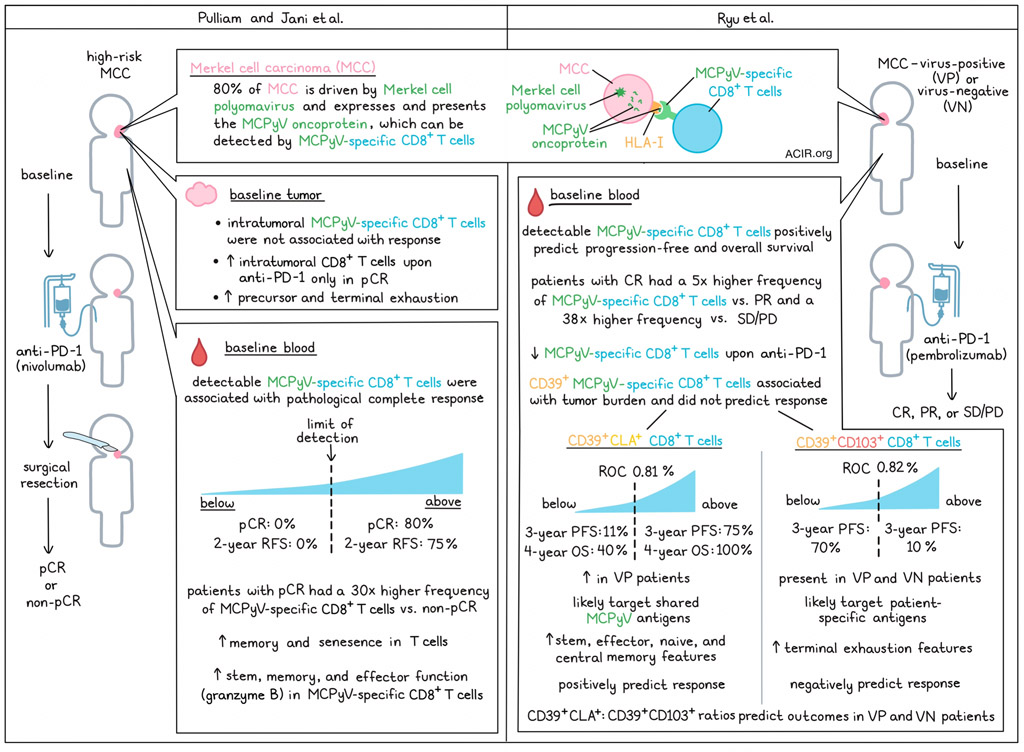 Pulliam and Jani et al.
Ryu et al.
high-risk
MCC
Merkel cell carcinoma (MCC)
80% of MCC is driven by Merkel cell
polyomavirus and expresses and presents
the MCPyV oncoprotein, which can be
detected by MCPyV-specific CD8⁺ T cells
MCC
Merkel cell
polyomavirus
MCPyV
oncoprotein
HLA-I
MCPyV-specific
CD8⁺ T cells
ACIR.org
MCC-virus-positive
(VP) or
virus-negative
(VN)
baseline
anti-PD-1
(nivolumab)
surgical
resection
pCR
or
non-pCR
baseline tumor
• intratumoral MCPyV-specific CD8⁺ T cells
were not associated with response
• ↑ intratumoral CD8⁺ T cells upon
anti-PD-1 only in pCR
• ↑ precursor and terminal exhaustion
baseline blood
detectable MCPyV-specific CD8⁺ T cells were
associated with pathological complete response
limit of
detection
below
above
pCR: 0%
pCR: 80%
2-year RFS: 0%
2-year RFS: 75%
patients with pCR had a 30x higher frequency
of MCPyV-specific CD8⁺ T cells vs. non-pCR
↑ memory and senesence in T cells
↑ stem, memory, and effector function
(granzyme B) in MCPyV-specific CD8⁺ T cells
baseline blood
detectable MCPyV-specific CD8⁺ T cells positively
predict progression-free and overall survival
patients with CR had a 5x higher frequency
of MCPyV-specific CD8⁺ T cells vs. PR and a
38x higher frequency vs. SD/PD
↓ MCPyV-specific CD8⁺ T cells upon anti-PD-1
CD39⁺ MCPyV-specific CD8⁺ T cells associated
with tumor burden and did not predict response
baseline
anti-PD-1
(pembrolizumab)
CR, PR, or SD/PD
CD39⁺CLA⁺ CD8⁺ T cells
ROC 0.81 %
below
above
3-year PFS: 11%
3-year PFS: 75%
4-year OS: 40%
4-year OS: 100%
↑ in VP patients
likely target shared
MCPyV antigens
↑ stem, effector, naive, and
central memory features
positively predict response
CD39⁺CD103⁺ CD8⁺ T cells
ROC 0.82%
below
above
3-year PFS:
70%
3-year PFS:
10 %
present in VP and VN patients
likely target patient-
specific antigens
↑ terminal exhaustion features
negatively predict response
CD39⁺CLA⁺: CD39⁺CD103⁺ ratios predict outcomes in VP and VN patients